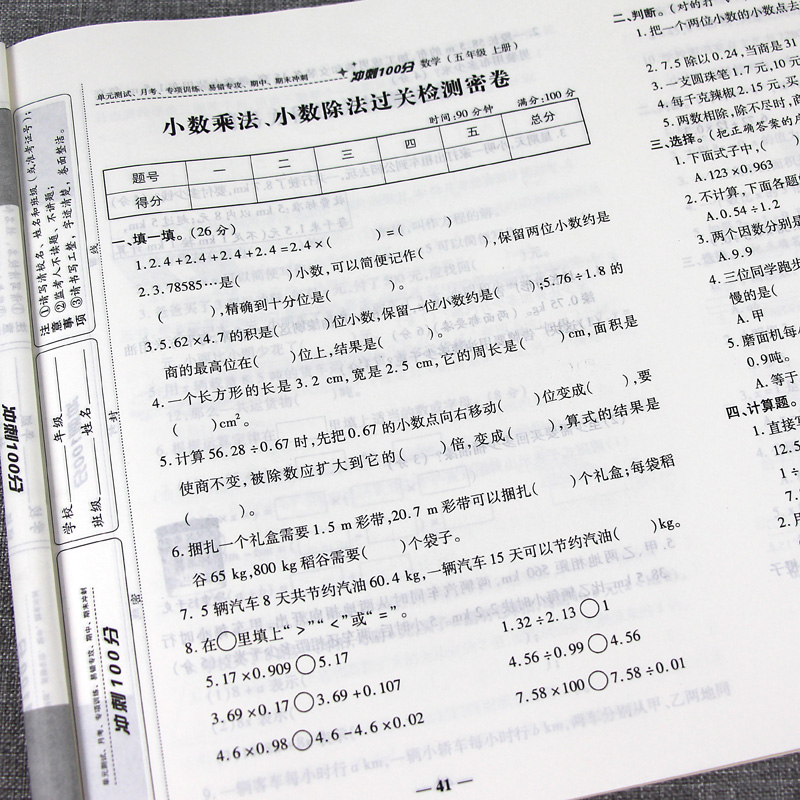 单元测试、月考、专项训练、易错专攻、期中、期末冲刺 冲刺100分 数学(五年级 上册)
小数乘法、小数除法过关检测密卷
时间:90分钟 满分:100分
题号 一 二 三 四 五 总分
得分
一、填一填。(26分)
1. 2.4+2.4+2.4+2.4=2.4×( )=( )
2. 3.78585…是( )小数,可以简便记作( ),保留两位小数约是
( ),精确到十分位是( )。
3. 5.62×4.7的积是( )位小数,保留一位小数约是( );5.76÷1.8的
商的最高位在( )位上,结果是( )。
4. 一个长方形的长是3.2 cm,宽是2.5 cm,它的周长是( )cm,面积是
( )cm²。
5. 计算56.28÷0.67时,先把0.67的小数点向右移动( )位变成( ),要
使商不变,被除数应扩大到它的( )倍,变成( ),算式的结果是
( )。
6. 捆扎一个礼盒需要1.5 m彩带,20.7 m彩带可以捆扎( )个礼盒;每袋稻
谷65 kg,800 kg稻谷需要( )个袋子。
7. 5辆汽车8天共节约汽油60.4 kg,一辆汽车15天可以节约汽油( )kg。
8. 在○里填上“>”“<”或“=”。
5.17×0.909○5.17 1.32÷2.13○1
3.69×0.17○3.69+0.107 4.56÷0.99○4.56
4.6×0.98○4.6-4.6×0.02 7.58×100○7.58÷0.01
— 41 —
二、判断。(对的打
1. 把一个两位小数的小数点去
2. 7.5除以0.24,当商是31
3. 一支圆珠笔1.7元,10元
4. 每千克辣椒2.15元,买
5. 两数相除,除不尽时,商
三、选择。(把正确答案的
1. 下面式子中,(
A. 123×0.963
2. 不计算,下面各题
A. 0.54÷1.2
3. 两个因数分别是
A. 9.9
4. 三位同学跑步
慢的是(
A. 甲
5. 磨面机每
0.9吨。
A. 等于
四、计算题。
1. 直接写
12.5
1÷
7.
2. 用
注意事项
①请写清校名、姓名和班级(或准考证号);
②监考人不读题、不讲题;
③请书写工整,字迹清楚,卷面整洁。
学校 年级
班级 姓名
线
封
密
冲刺100分
单元测试、月考、专项训练、易错专攻、期中、期末冲刺
冲刺100分